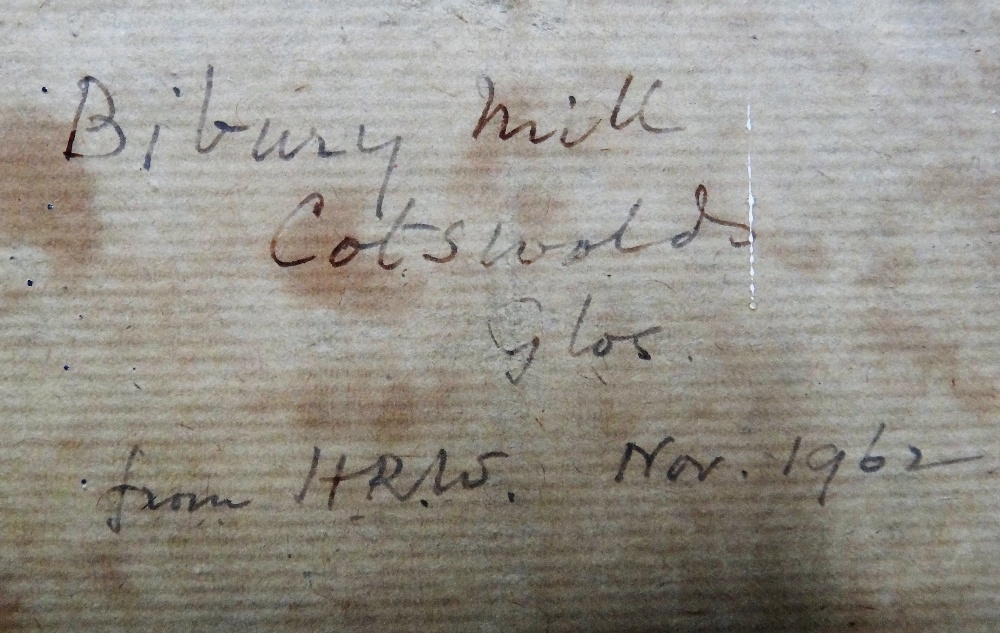 Bibury Mill
Cotswolds
Glos.
from H.R.W. Nov. 1962